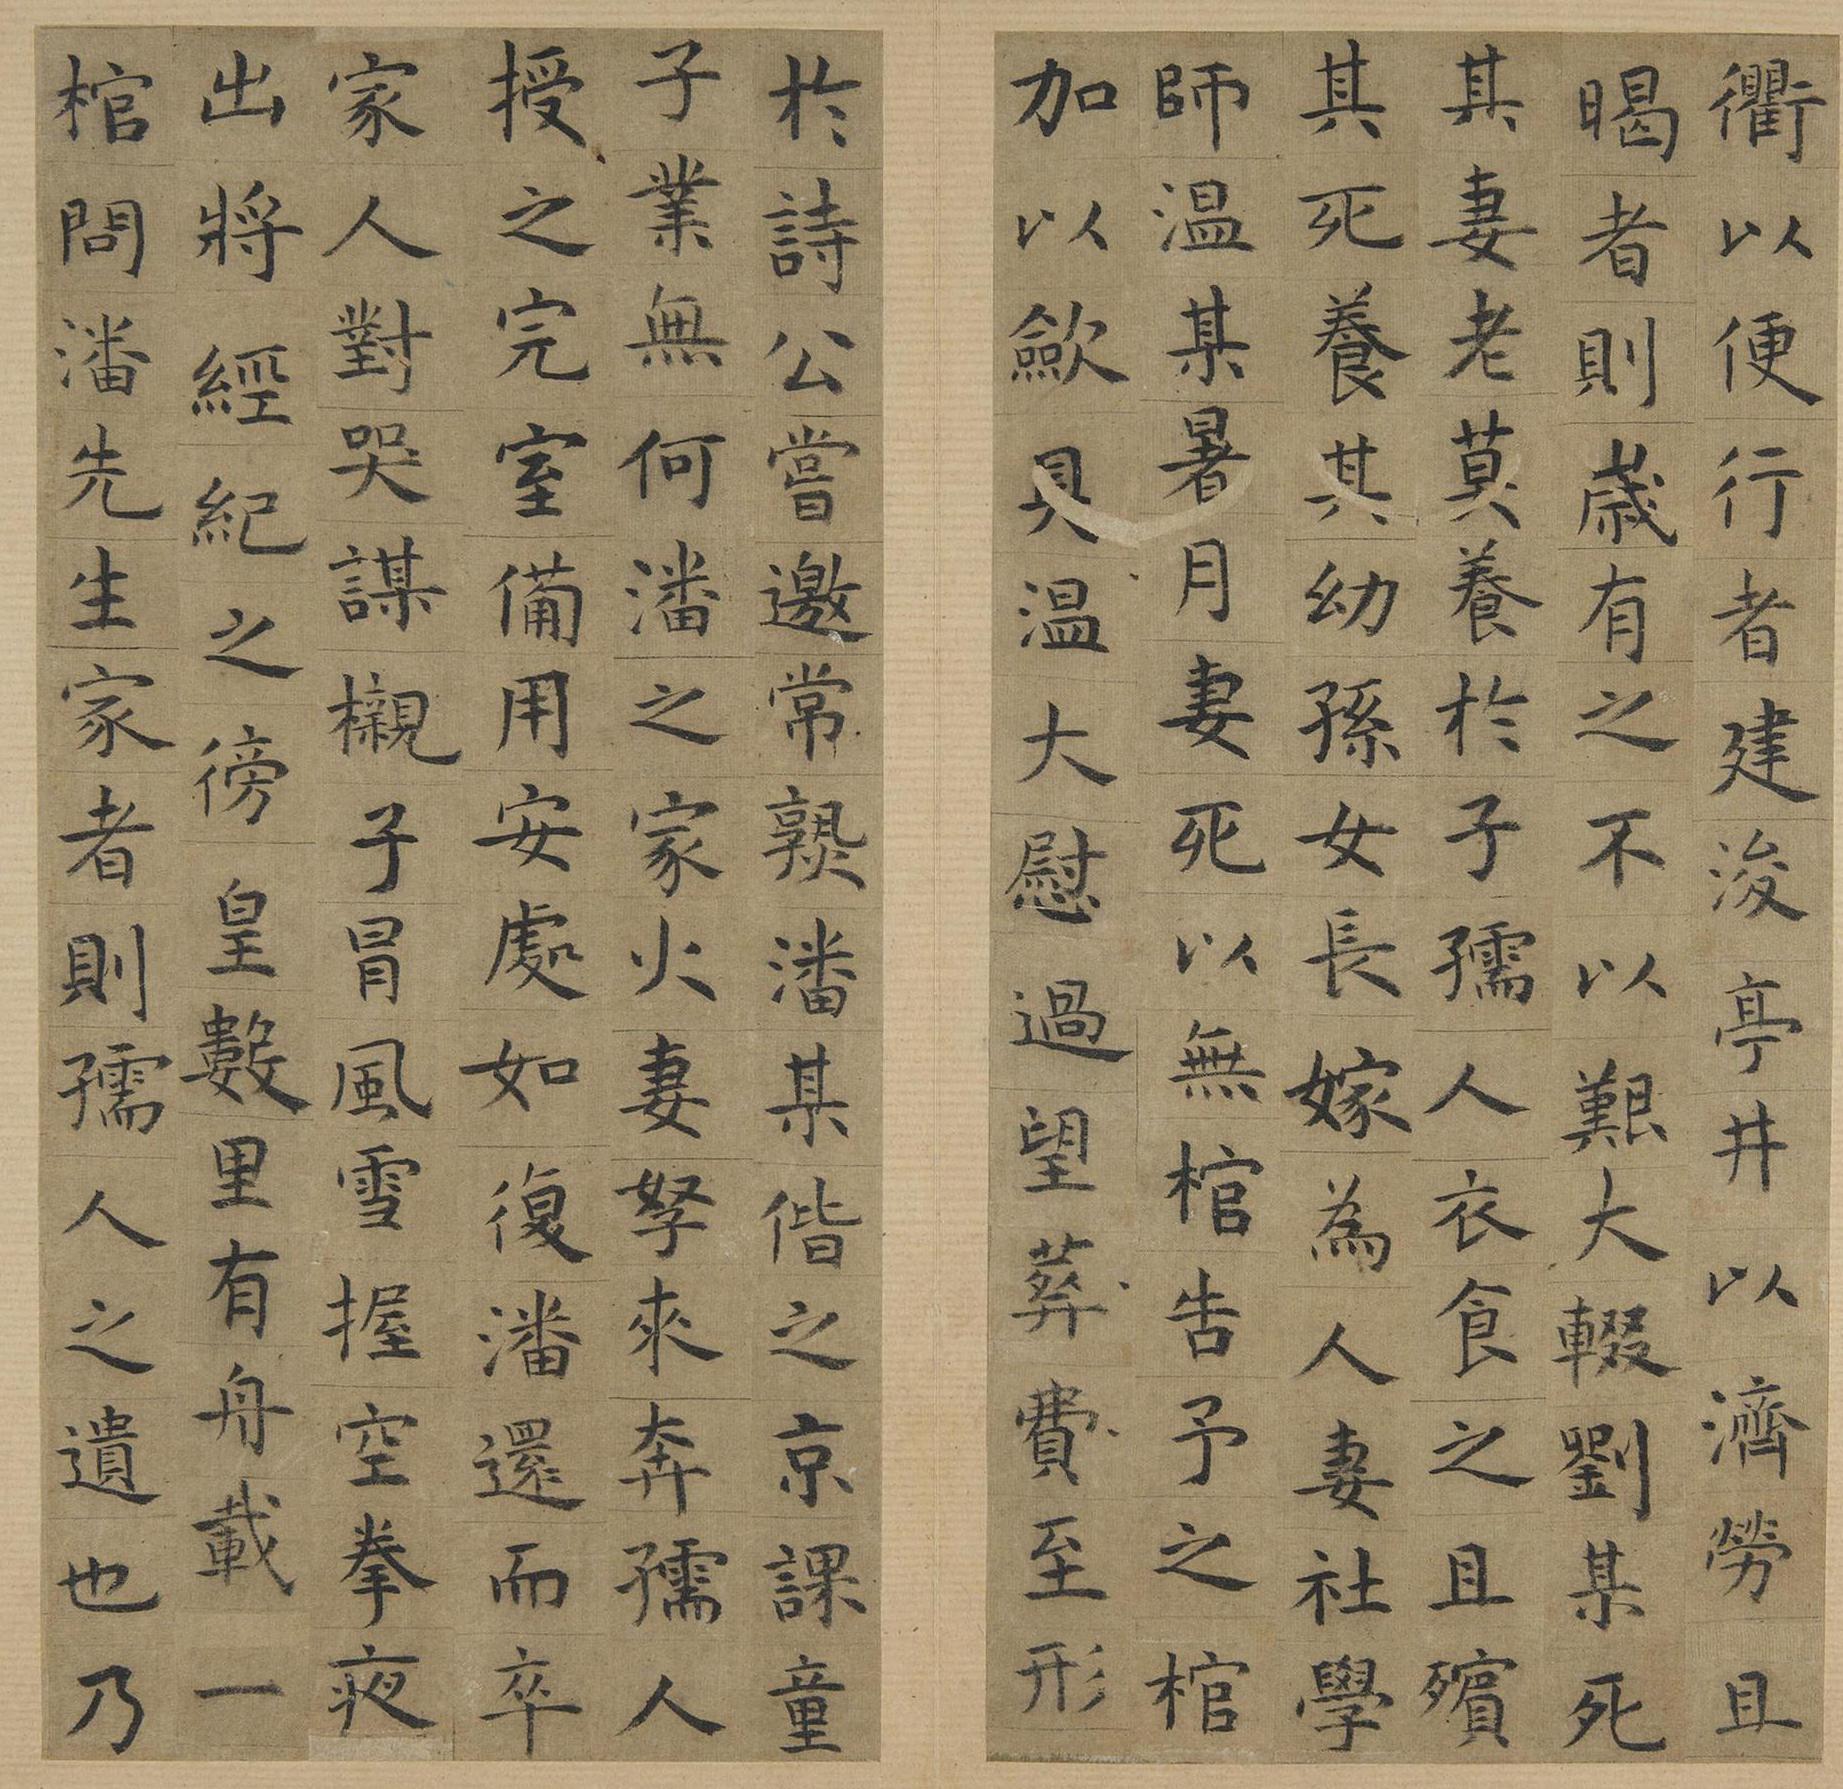 衢以便行者建浚亭井以濟勞且
暍者則歲有之不以艱大輟劉某死
其妻老莫養於子孺人衣食之且殯
其死養其幼孫女長嫁為人妻社學
師温某暑月妻死以無棺告予之棺
加以歛具温大慰過望葬費至形
於詩公嘗邀常熟潘某偕之京課童
子業無何潘之家火妻孥來奔孺人
授之完室備用安處如復潘還而卒
家人對哭謀櫬子冒風雪握空拳夜
出將經紀之徬皇數里有舟載一
棺問潘先生家者則孺人之遺也乃